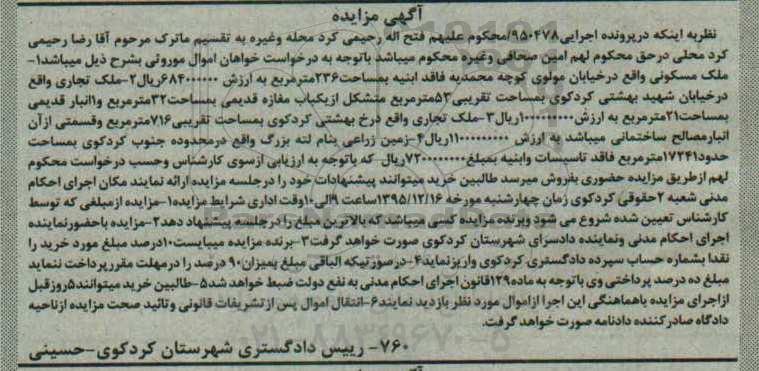 آگهی مزایده
نظربه اینکه درپرونده اجرایی۹۵۰۴۷۸/محکوم علیهم فتح اله رحیمی کرد محله وغیره به تقسیم ماترک مرحوم آقا رضا رحیمی
کرد محلی درحق محکوم لهم امین صحافی وغیره محکوم میباشد باتوجه به درخواست خواهان اموال موروثی بشرح ذیل میباشد۱-
ملک مسکونی واقع درخیابان مولوی کوچه محمدیه فاقد ابنیه بمساحت۲۳۶مترمربع به ارزش ۶۸۴۰۰۰۰۰۰ریال۲-ملک تجاری واقع
درخیابان شهید بهشتی کردکوی بمساحت تقریبی۵۳مترمربع متشکل ازیکباب مغازه قدیمی بمساحت۳۲مترمربع و۱انبار قدیمی
بمساحت۲۱مترمربع به ارزش۱۰۰۰۰۰۰۰۰۰ریال۳-ملک تجاری واقع درخ بهشتی کردکوی بمساحت تقریبی۷۱۶مترمربع وقسمتی ازآن
انبارمصالح ساختمانی میباشد به ارزش ۱۱۰۰۰۰۰۰۰۰۰ریال۴-زمین زراعی بنام لته بزرگ واقع درمحدوده جنوب کردکوی بمساحت
حدود۱۷۲۴۱مترمربع فاقد تاسیسات وابنیه بمبلغ۷۲۰۰۰۰۰۰۰۰ریال که باتوجه به ارزیابی ازسوی کارشناس وحسب درخواست محکوم
لهم ازطریق مزایده حضوری بفروش میرسد طالبین خرید میتوانند پیشنهادات خود را درجلسه مزایده ارائه نمایند مکان اجرای احکام
مدنی شعبه ۲حقوقی کردکوی زمان چهارشنبه مورخه ۱۳۹۵/۱۲/۱۶ساعت ۹الی۱۰وقت اداری شرایط مزایده۱-مزایده ازمبلغی که توسط
کارشناس تعیین شده شروع می شود وبرنده مزایده کسی میباشد که بالاترین مبلغ را درجلسه پیشنهاد دهد۲-مزایده باحضورنماینده
اجرای احکام مدنی ونماینده دادسرای شهرستان کردکوی صورت خواهد گرفت۳-برنده مزایده میبایست۱۰درصد مبلغ مورد خرید را
نقدا بشماره حساب سپرده دادگستری کردکوی واریزنماید۴-درصورتیکه الباقی مبلغ بمیزان۹۰ درصد را درمهلت مقررپرداخت ننماید
مبلغ ده درصد پرداختی وی باتوجه به ماده۱۲۹قانون اجرای احکام مدنی به نفع دولت ضبط خواهد شد۵-طالبین خرید میتوانند۵روزقبل
ازاجرای مزایده باهماهنگی این اجرا ازاموال مورد نظربازدید نمایند۶-انتقال اموال پس ازتشریفات قانونی وتائید صحت مزایده ازناحیه
دادگاه صادرکننده دادنامه صورت خواهد گرفت.
۷۶۰- رییس دادگستری شهرستان کردکوی-حسینی